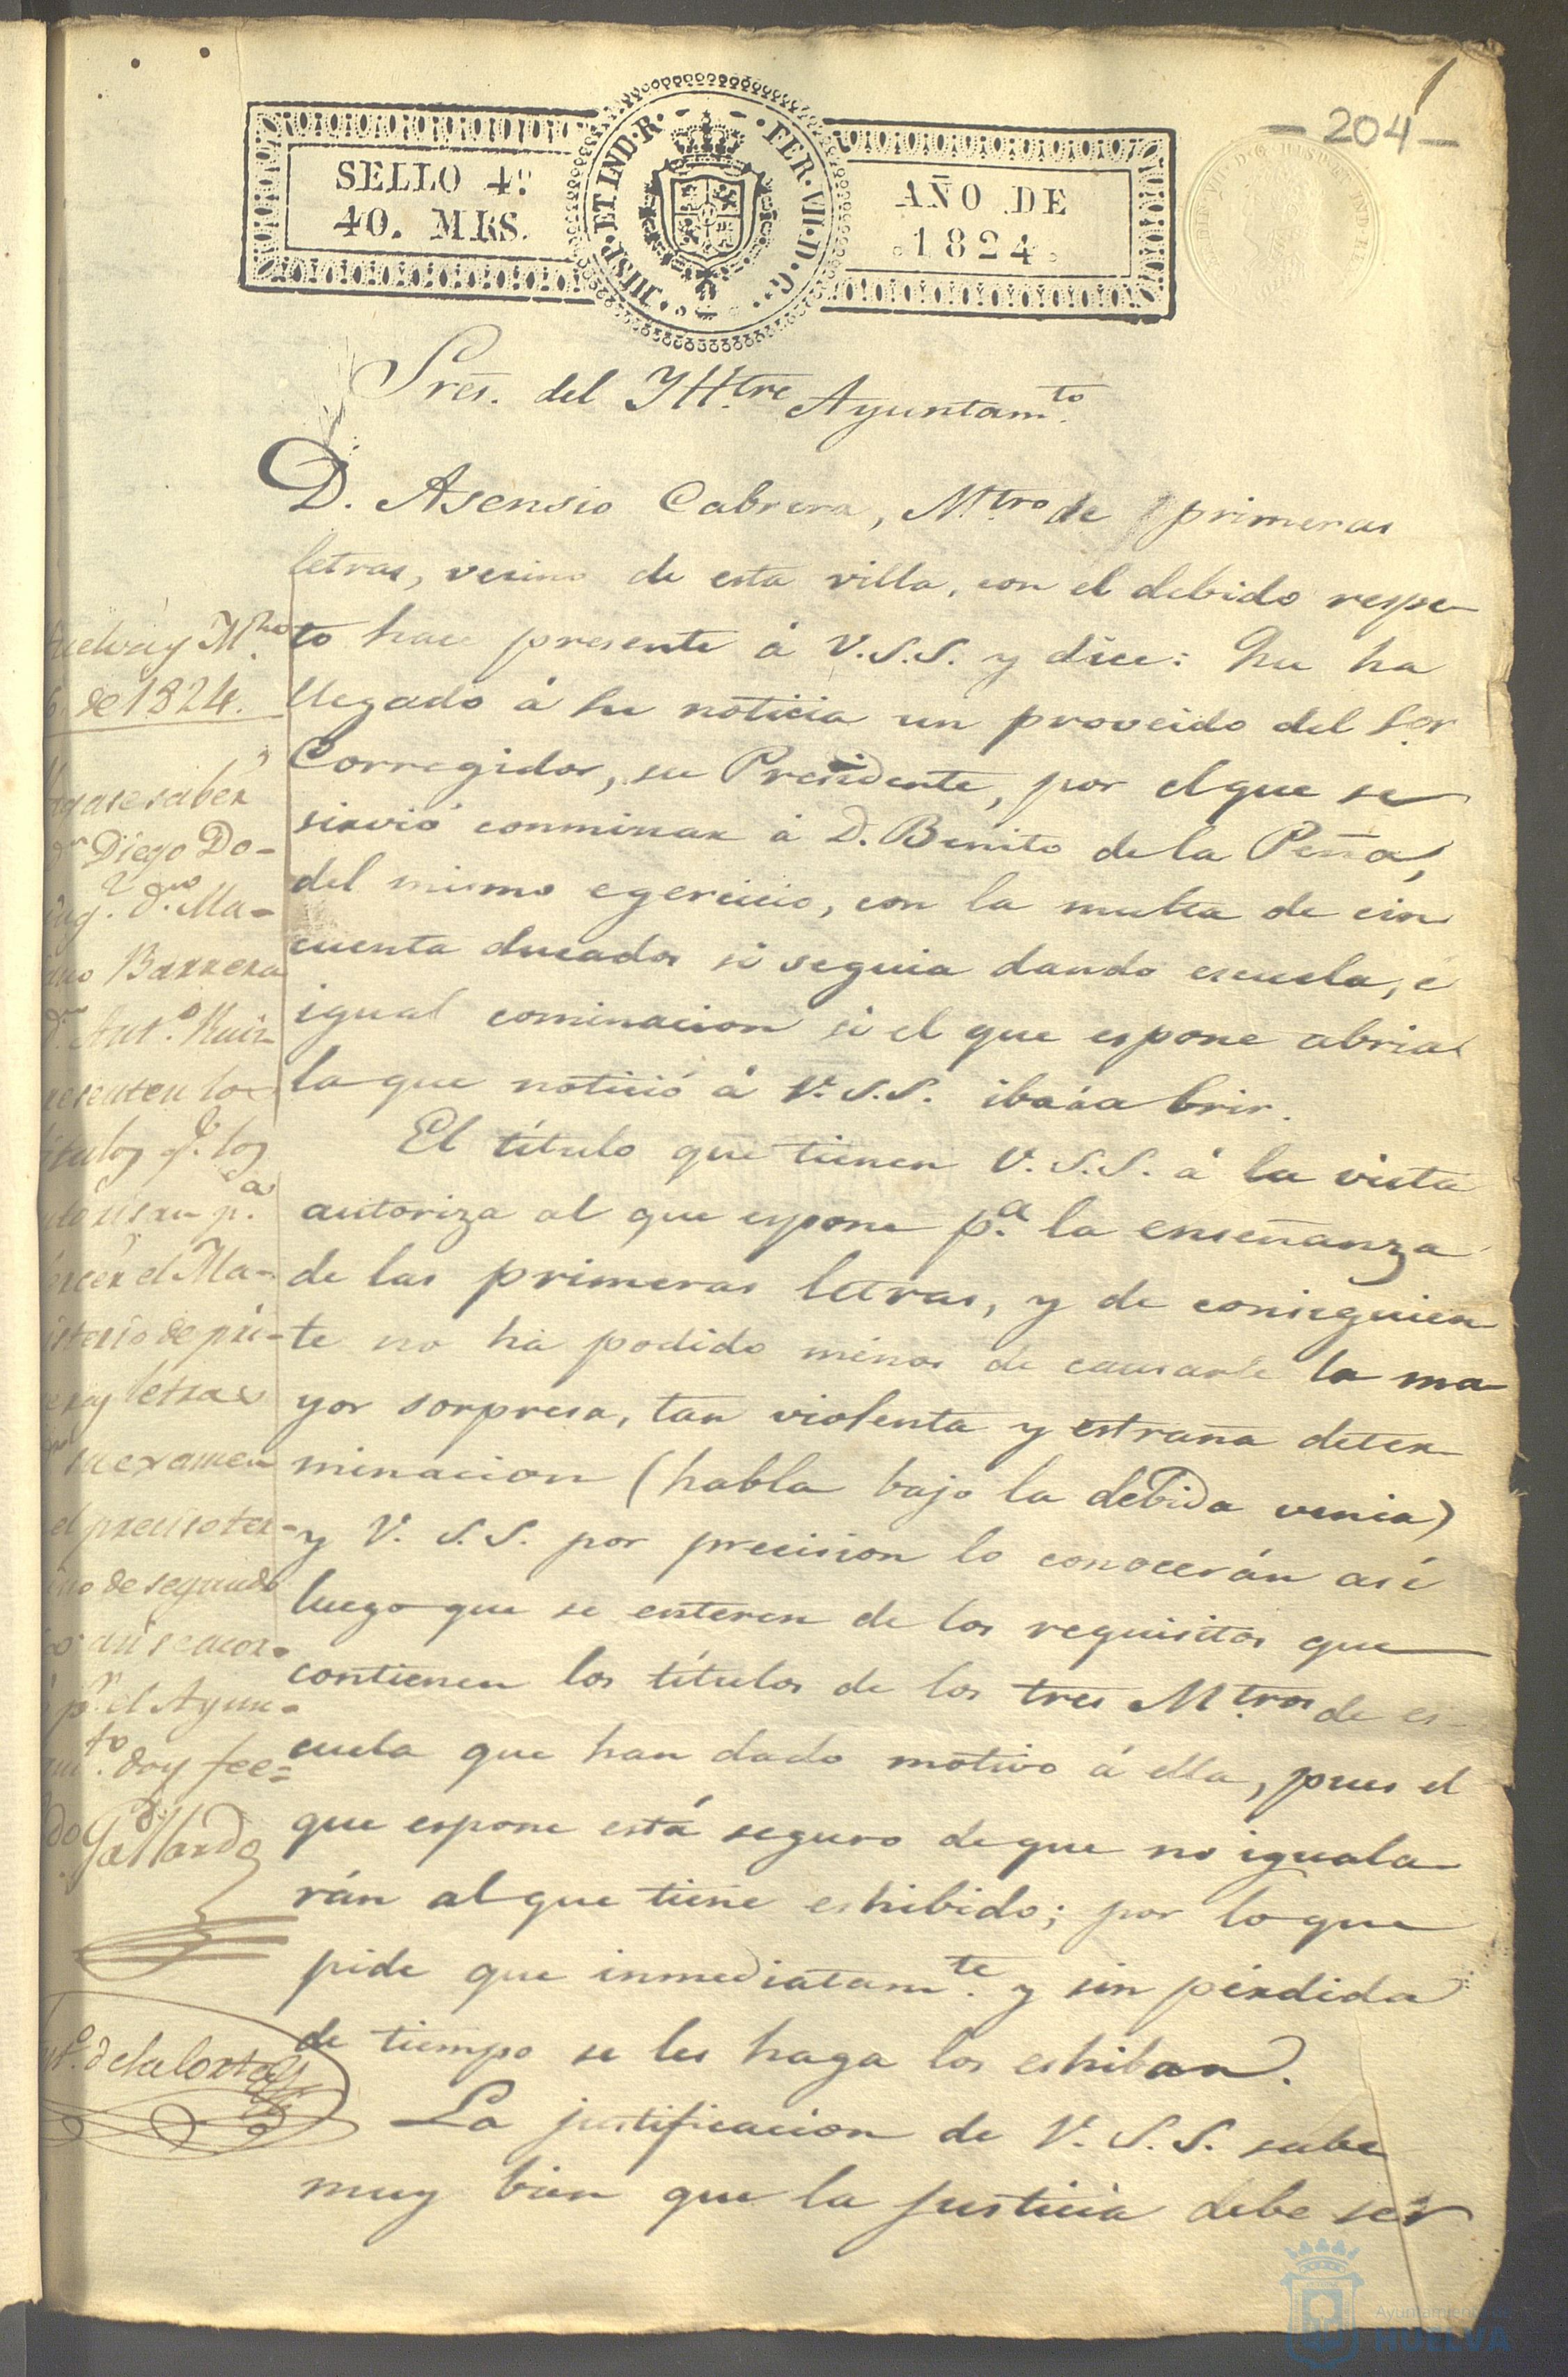 204
SELLO 4º
40. MRS.
HISP. ET IND. R. FER. VII. D. G.
AÑO DE
1824
Sres. del Yltre Ayuntamto.
D. Asensio Cabrera, Mtro de primeras
letras, vecino de esta villa, con el debido respe-
to hace presente á V.S.S. y dice: Que ha
llegado á su noticia un proveido del Sor
Corregidor, su Presidente, por el que se
sirvió conminar á D. Benito de la Peña,
del mismo egercicio, con la multa de cin
cuenta ducados si seguia dando escuela, é
igual cominacion si el que espone abria
la que notició á V.S.S. iba á a brir.
El título que tienen V.S.S. á la vista
autoriza al que espone pa. la enseñanza
de las primeras letras, y de consiguien
te no ha podido menos de causarle la ma-
yor sorpresa, tan violenta y estraña deter
minacion (habla bajo la debida venia)
y V.S.S. por precision lo conocerán así
luego que se enteren de los requisitos que
contienen los títulos de los tres Mtros de es-
cuela que han dado motivo á ella, pues el
que espone está seguro de que no iguala-
rán al que tiene eshibido; por lo que
pide que inmediatamte. y sin pérdida
de tiempo se les haga los eshiban.
La justificacion de V.S.S. sabe
muy bien que la justicia debe ser
uelva y Mzo
6. de 1824.
agase saber
Dn Diego Do-
Dn. Ma-
no Barrera
Dn. Anto. Ruiz
resenten los
ítulos q. los
torisan pa.
ercer el Ma-
isterio de pri-
eras letras
su examen
el preciso ter-
ino de segundo
asi se acor-
pr. el Ayun-
mto. doy fee=
Gallardo
de la Corte
Ayuntamiento de
HUELVA